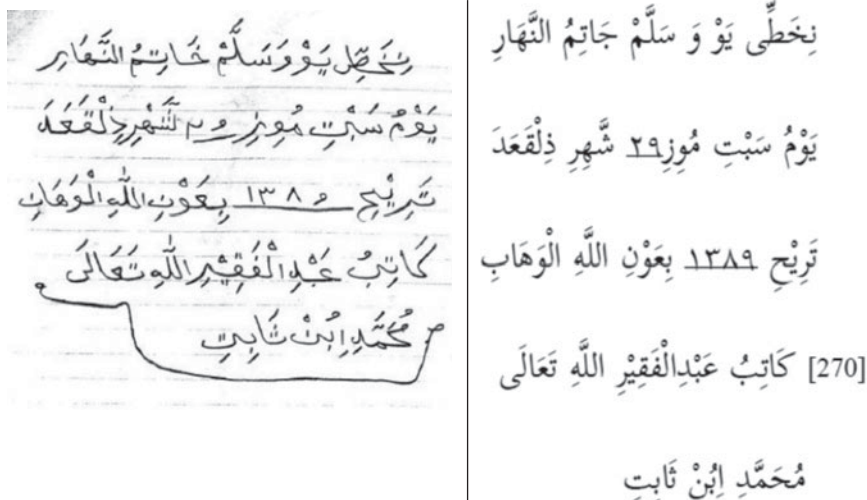 نِخَطِّی يَوْ وَسَلَّمْ خَاتِمُ النَّهَارِ
يَوْمُ سَبْتِ مُوِزِ ٢٩ لشَّهْرِ ذِلْقَعَدَ
تَرِيْحِ ١٣٨٩ بِعَوْنِ اللَّهِ الْوَهَابِ
كَاتِبُ عَبْدِ الْفَقِيْرِ اللَّهِ تَعَالَى
مُحَمَّدِ اِبُنْ ثَابِتِ
نِخَطِّی يَوْ وَ سَلَّمْ جَاتِمُ النَّهَارِ
يَوْمُ سَبْتِ مُوِزِ٢٩ شَّهِرِ ذِلْقَعَدَ
تَرِيْحِ ١٣٨٩ بِعَوْنِ اللَّهِ الْوَهَابِ
[270] كَاتِبُ عَبْدِالْفَقِيْرِ اللَّهِ تَعَالَى
مُحَمَّدِ اِبُنْ ثَابِتِ